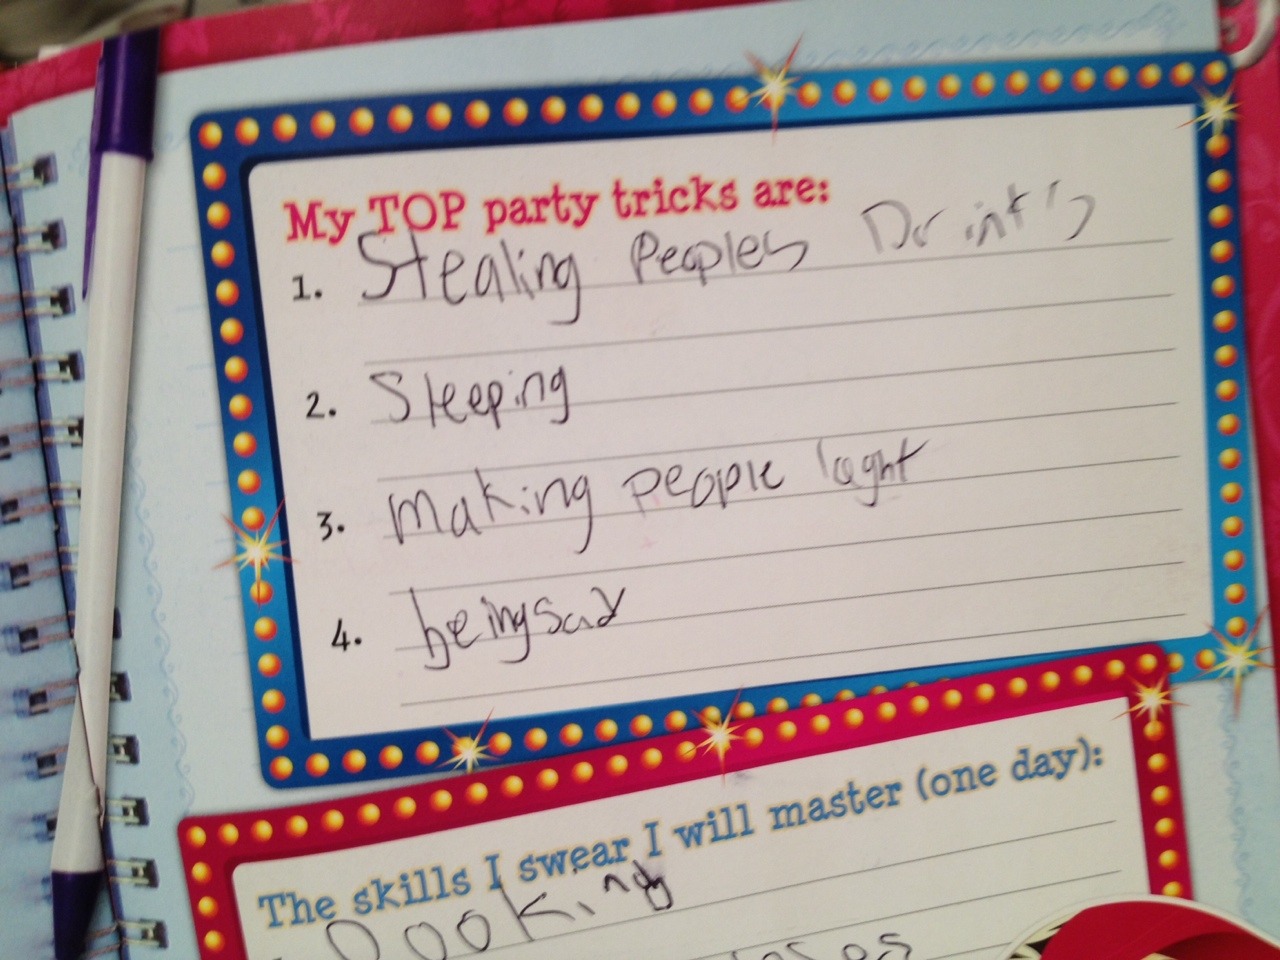 My TOP party tricks are:
1. Stealing Peoples Drint's
2. Sleeping
3. Making people laght
4. being sad
The skills I swear I will master (one day):
Cooking